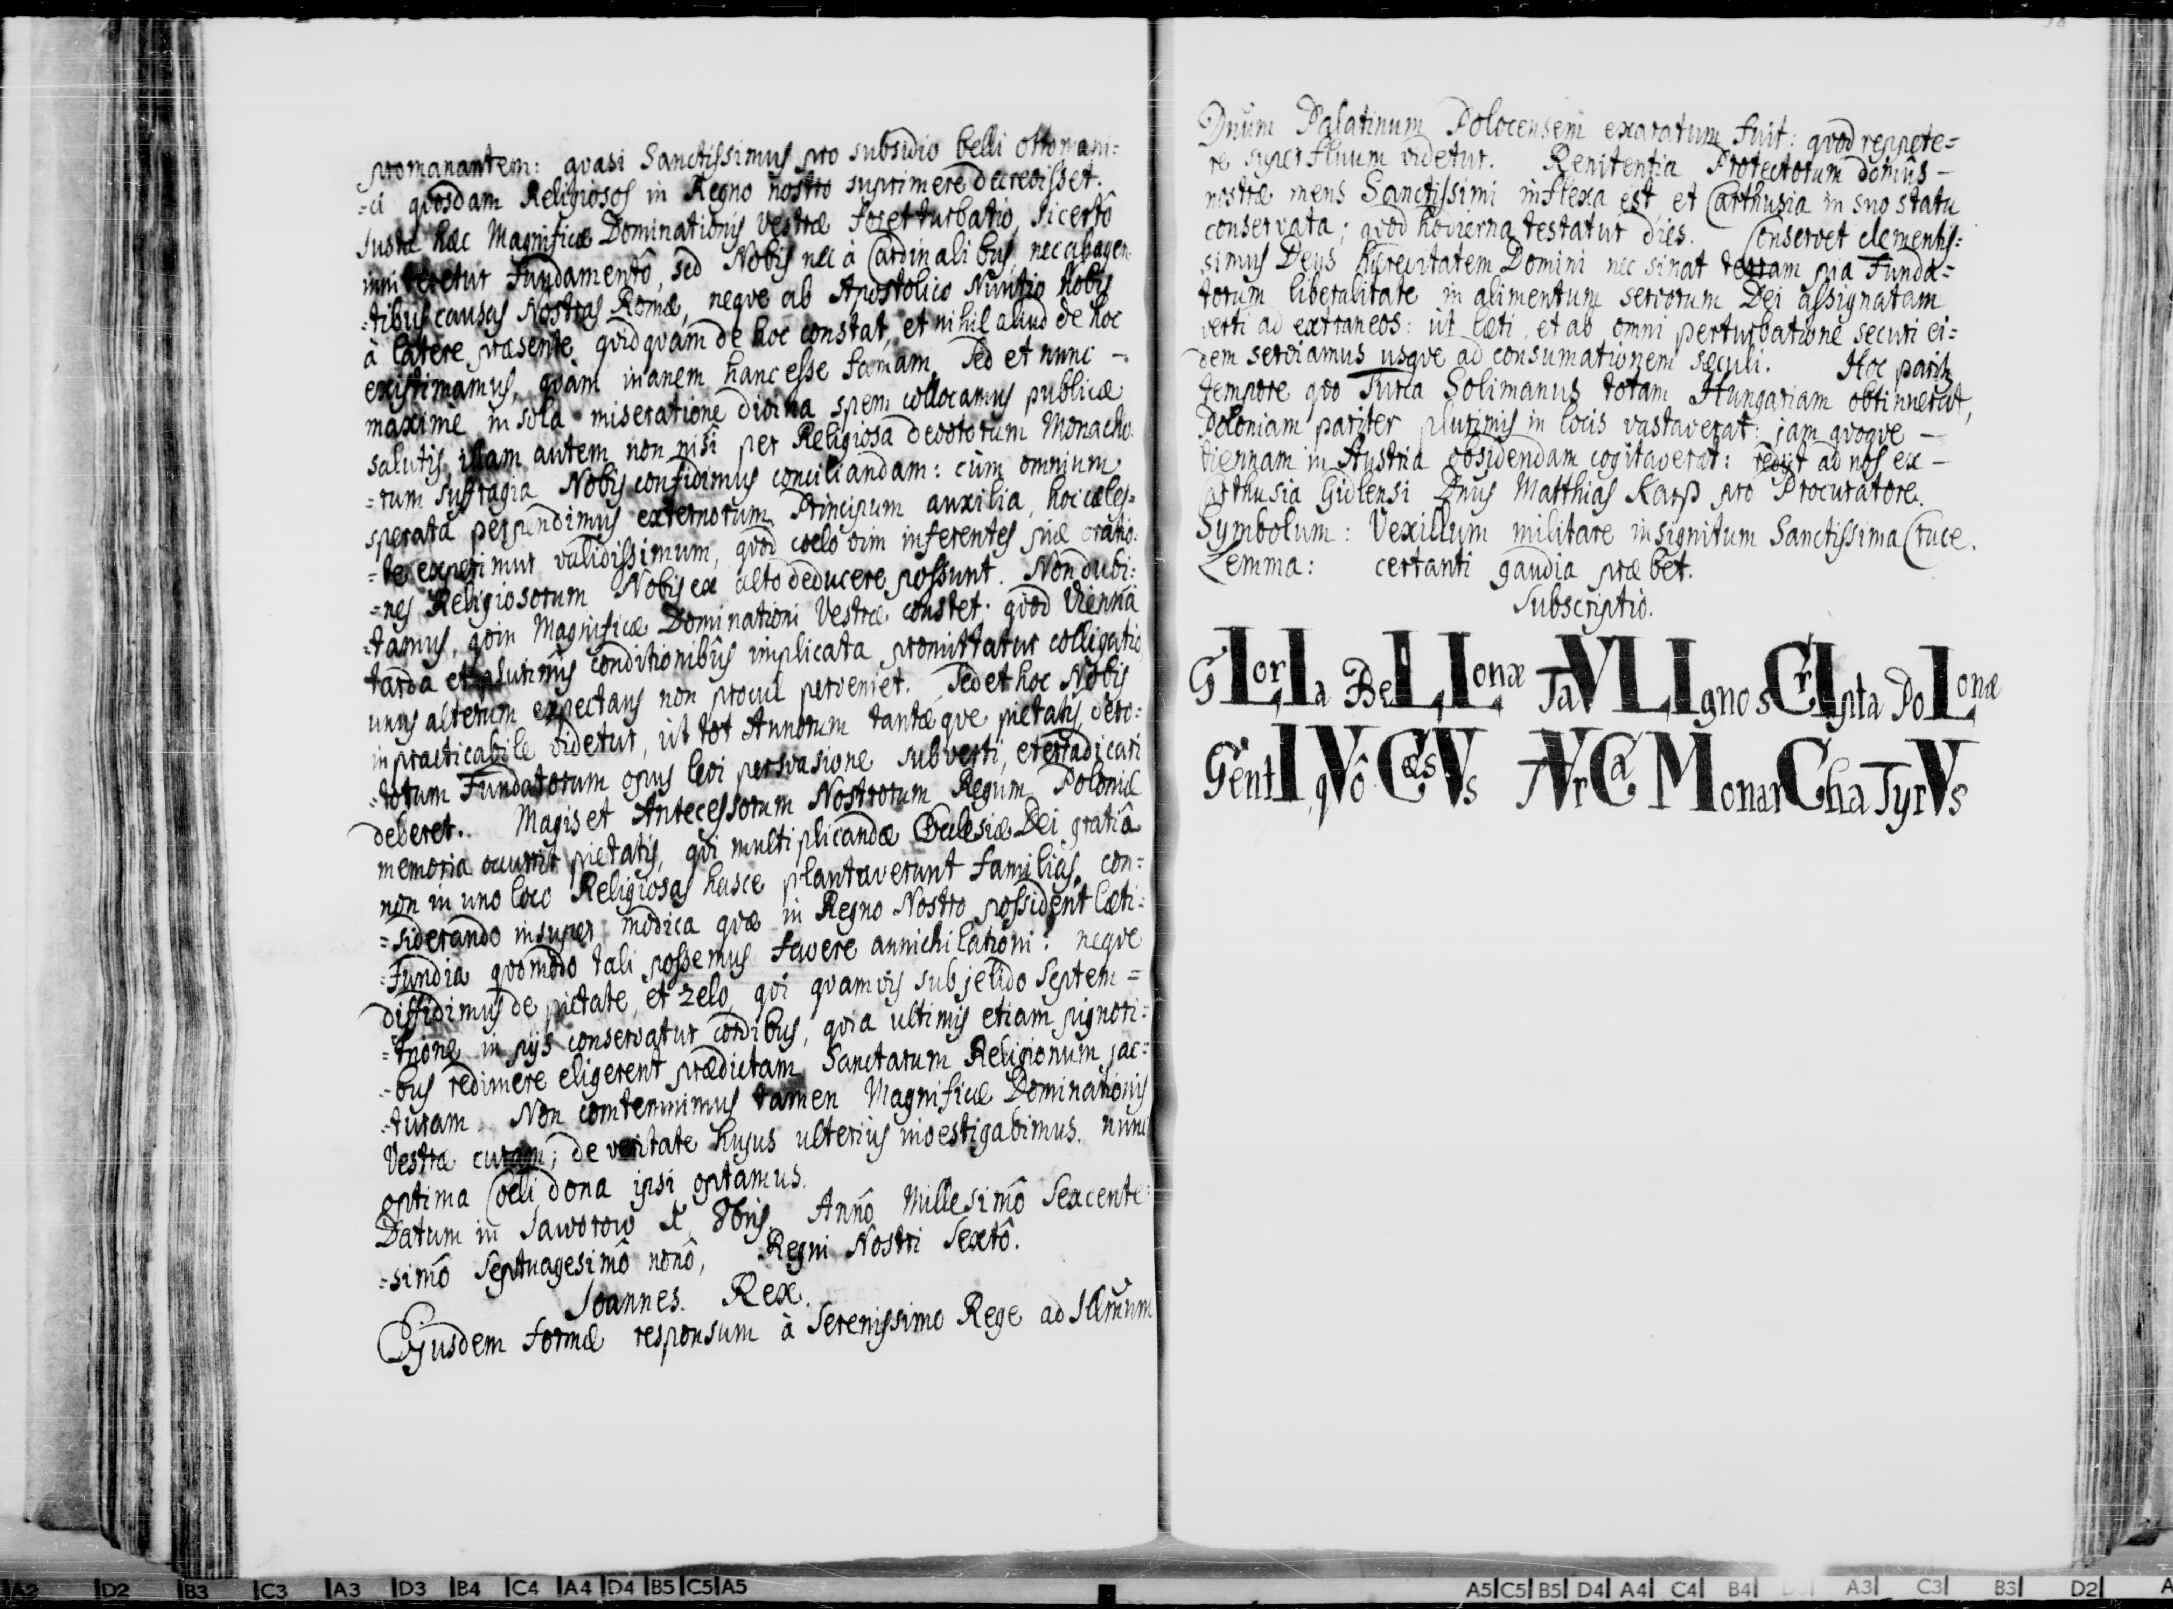 promanantem: quasi Sanctissimus pro subsidio belli ottomani=
=ci quosdam Religiosos in Regno nostro suprimere decrevisset.
Justa hæc Magnificæ Dominationis Vestræ foret turbatio, si certô
inniteretur fundamentô, sed Nobis nec à Cardinalibus, nec ab agen-
=tibus causas Nostras Romæ, neque ab Apostolico Nuntio Nobis
à latere præsente quidquam de hoc constat, et nihil aliud de hoc
existimamus, quàm inanem hanc esse famam. Sed et nunc -
maxime in sola miseratione divina spem collocamus publicæ
salutis, illam autem non nisi per Religiosa devotorum Monacho-
=rum suffragia Nobis confidimus conciliandam: cùm omnium
sperata perpendimus externorum Principum auxilia, hoc cæles=
=te experimur validissimum, quod coelo vim inferentes piæ oratio=
=nes Religiosorum Nobis ex alto deducere possunt. Non dubi=
=tamus, quin Magnificæ Dominationi Vestræ constet: quod Viennâ
tarda et plurimis conditionibus implicata promittatur colligatio,
unus alterum expectans non procul perveniet. Sed et hoc Nobis
inpracticabile videtur, ut tot Annorum tantæque pietatis devo=
=torum Fundatorum opus levi persvasione subverti, et erradicari
deberet. Magis et Antecessorum Nostrorum Regum Poloniæ
memoria occurrit pietatis, qui multiplicandæ Ecclesiæ Dei gratiâ
non in uno loco Religiosas hasce plantaverunt familias, con=
=siderando insuper modica quæ in Regno Nostro possident lati=
=fundia quomodo tali possemus favere annichilationi: neque
diffidimus de pietate, et zelo, qui quamvis sub jelido Septem=
=trione in pijs conservatur cordibus, quia ultimis etiam pignori=
=bus redimere eligerent prædictam Sanctarum Religionum jac=
=turam. Non contemnimus tamen Magnificæ Dominationis
Vestræ curam; de veritate hujus ulterius investigabimus. nunc
optima Coeli dona ipsi optamus.
Datum in Jaworow X 8bris Annô Millesimô Sexcente=
=simô Septuagesimô nonô, Regni Nostri Sextô.
Joannes. Rex.
Ejusdem formæ responsum à Serenissimo Rege ad Illmum
Dnum Palatinum Polocensem exaratum fuit: quod reppete=
re superfluum videtur. Renitentia Protectorum domûs -
nostræ mens Sanctissimi inflexa est et Carthusia in suo statu
conservata; quod hodierna testatur dies. Conservet clementis=
simus Deus hæreditatem Domini nec sinat terram pia Funda=
torum liberalitate in alimentum servorum Dei assignatam
verti ad extraneos: ut læti, et ab omni perturbatione securi ei=
dem serviamus usque ad consumationem sæculi. Hoc pariter
tempore quo Turca Solimanus totam Hungariam obtinuerat,
Poloniam pariter plurimis in locis vastaverat: jam quoque -
Viennam in Austria obsidendam cogitaverat: rediit ad nos ex -
Carthusia Gidlensi Dnus Matthias Karp pro Procuratore.
Symbolum: Vexillum militare insignitum Sanctissima Cruce.
Lemma: certanti gaudia præbet.
Subscriptio.
GLorIa BeLLIonæ TaVLIgno sCrIpta PoLonæ
GentI, qVô CæsVs TVrCa MonarCha TyrVs